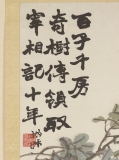 百子千房
奇樹傳領取
宰相記十年